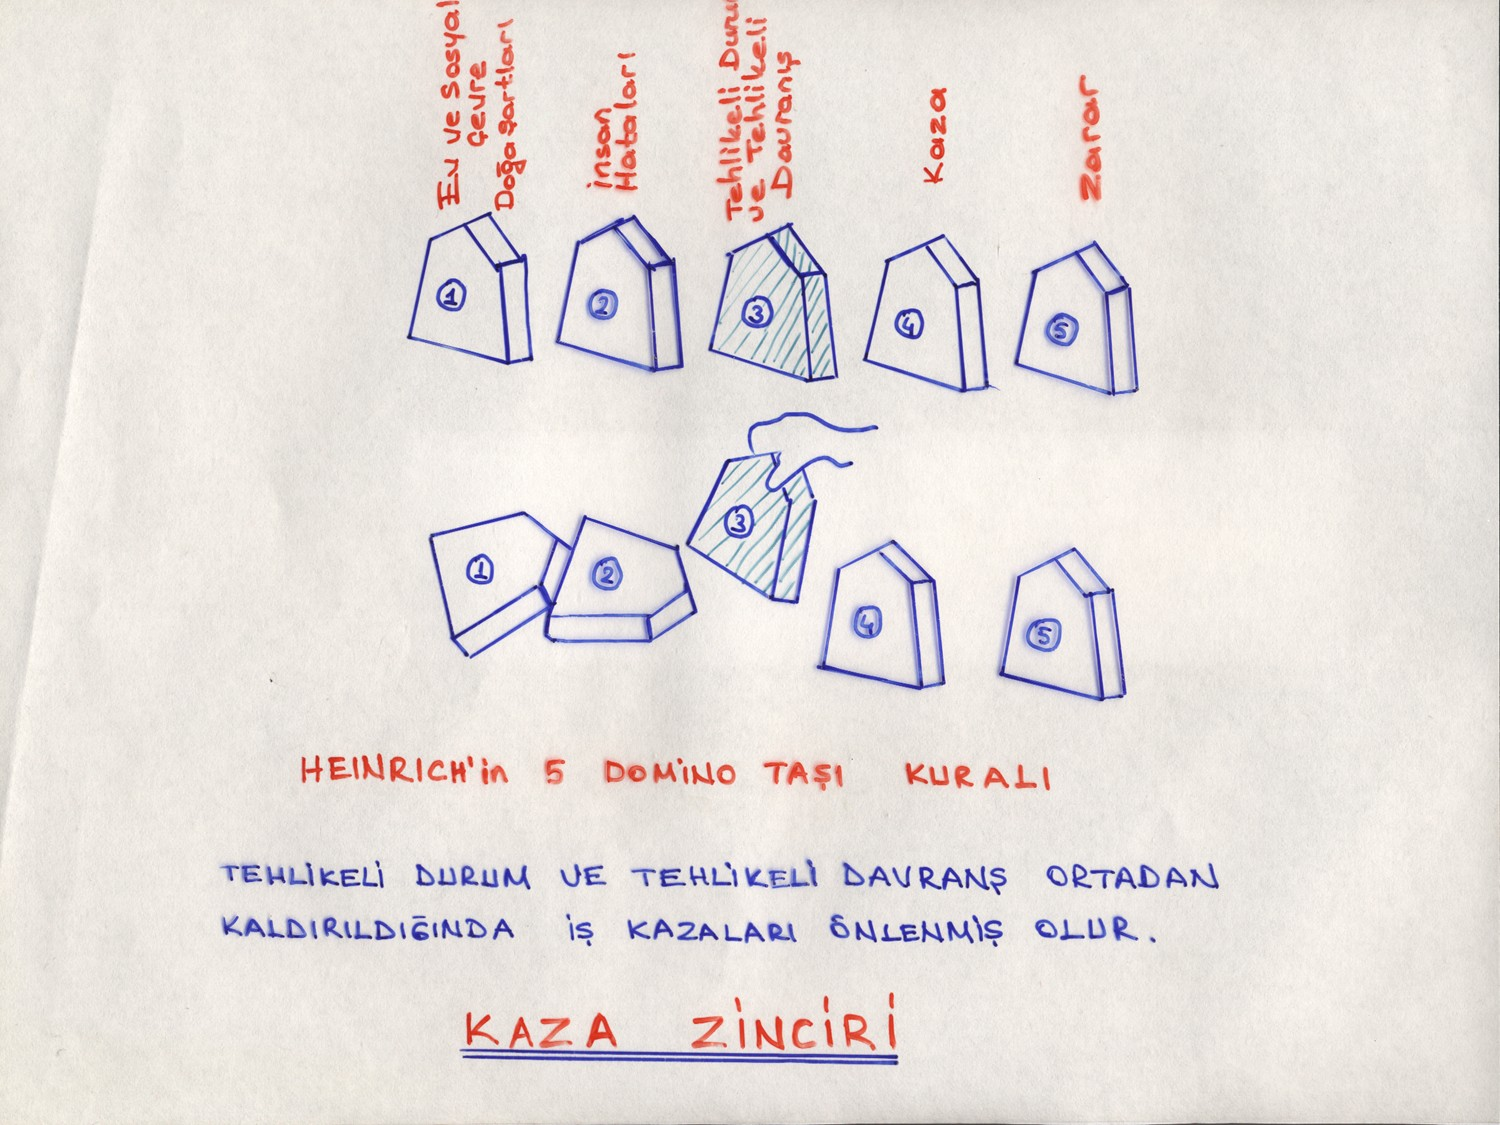 Ev ve Sosyal
Çevre
Doğa Şartları
İnsan
Hataları
Tehlikeli
ve Tehlikeli
Davranış
Kaza
Zarar
1
2
3
4
5
1
2
3
4
5
HEINRICH'in 5 DOMİNO TAŞI KURALI
TEHLİKELİ DURUM VE TEHLİKELİ DAVRANŞ ORTADAN
KALDIRILDIĞINDA İŞ KAZALARI ÖNLENMİŞ OLUR.
KAZA ZİNCİRİ